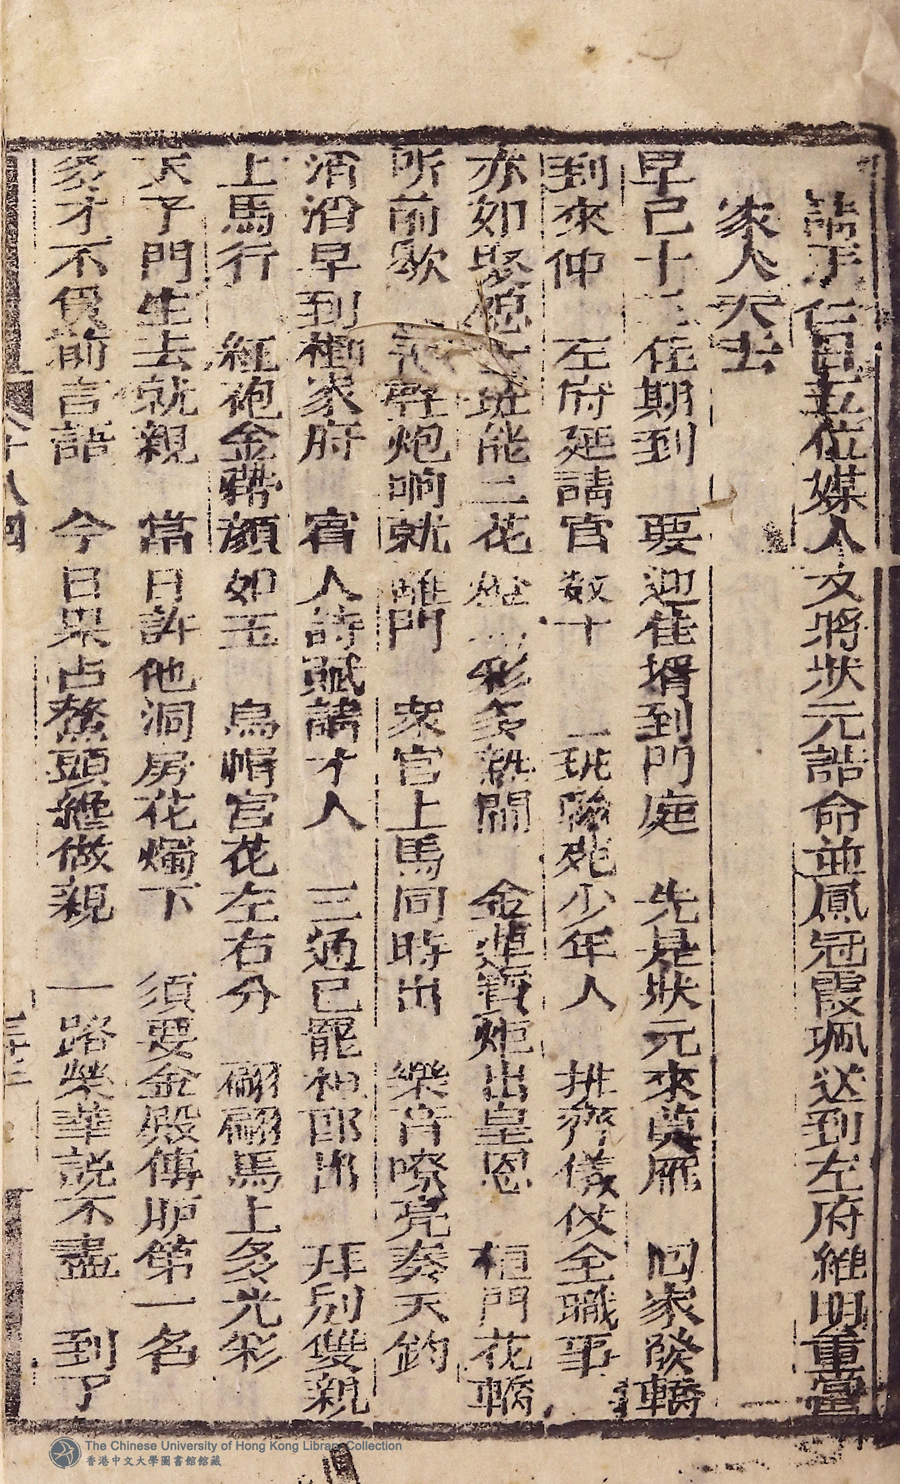 請手仁同五位媒人友將狀元誥命並鳳冠霞珮送到左府維明重賞
家人不去
早已十二佳期到 要迎佳壻到門庭 先是狀元來奠雁 回家發轎
到來仲 左府延請官數十 一班翰苑少年人 排齊儀仗全職事
亦如娶 班能二花 彩多熱鬧 金蓮寶炬出皇恩 桓門花轎
所前歇 聲炮响就離門 衆官上馬同時出 樂音嘹亮奏天鈞
滔滔早到桓家府 賓人詩賦請才人 三通已罷桓郎出 拜别雙親
上馬行 紅袍金帶顔如玉 烏帽宮花左右分 翩翩馬上多光彩
天子門生去就親 當日許他洞房花燭下 須要金殿傳臚第一名
多才不負前言語 今日果占鰲頭纔做親 一路榮華説不盡 到了
The Chinese University of Hong Kong Library Collection
香港中文大學圖書館館藏